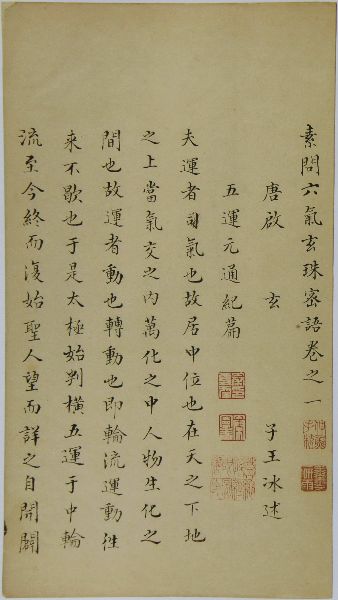 素問六氣玄珠密語卷之一
唐啟玄子王冰述
五運元通紀篇
夫運者司氣也故居中位也在天之下地
之上當氣交之內萬化之中人物生化之
間也故運者動也轉動也即輪流運動往
来不歇也于是太極始判橫五運于中輪
流至今終而復始聖人望而詳之自開闢